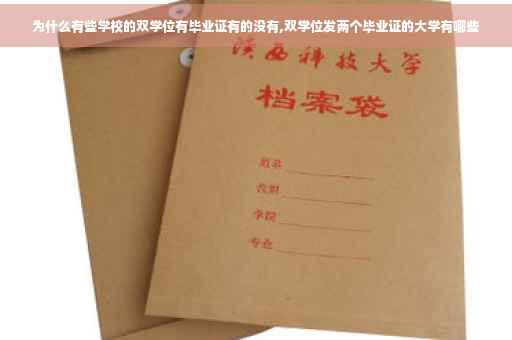 为什么有些学校的双学位有毕业证有的没有,双学位发两个毕业证的大学有哪些
陕西科技大学
档案袋
姓名
教职
学院
专业